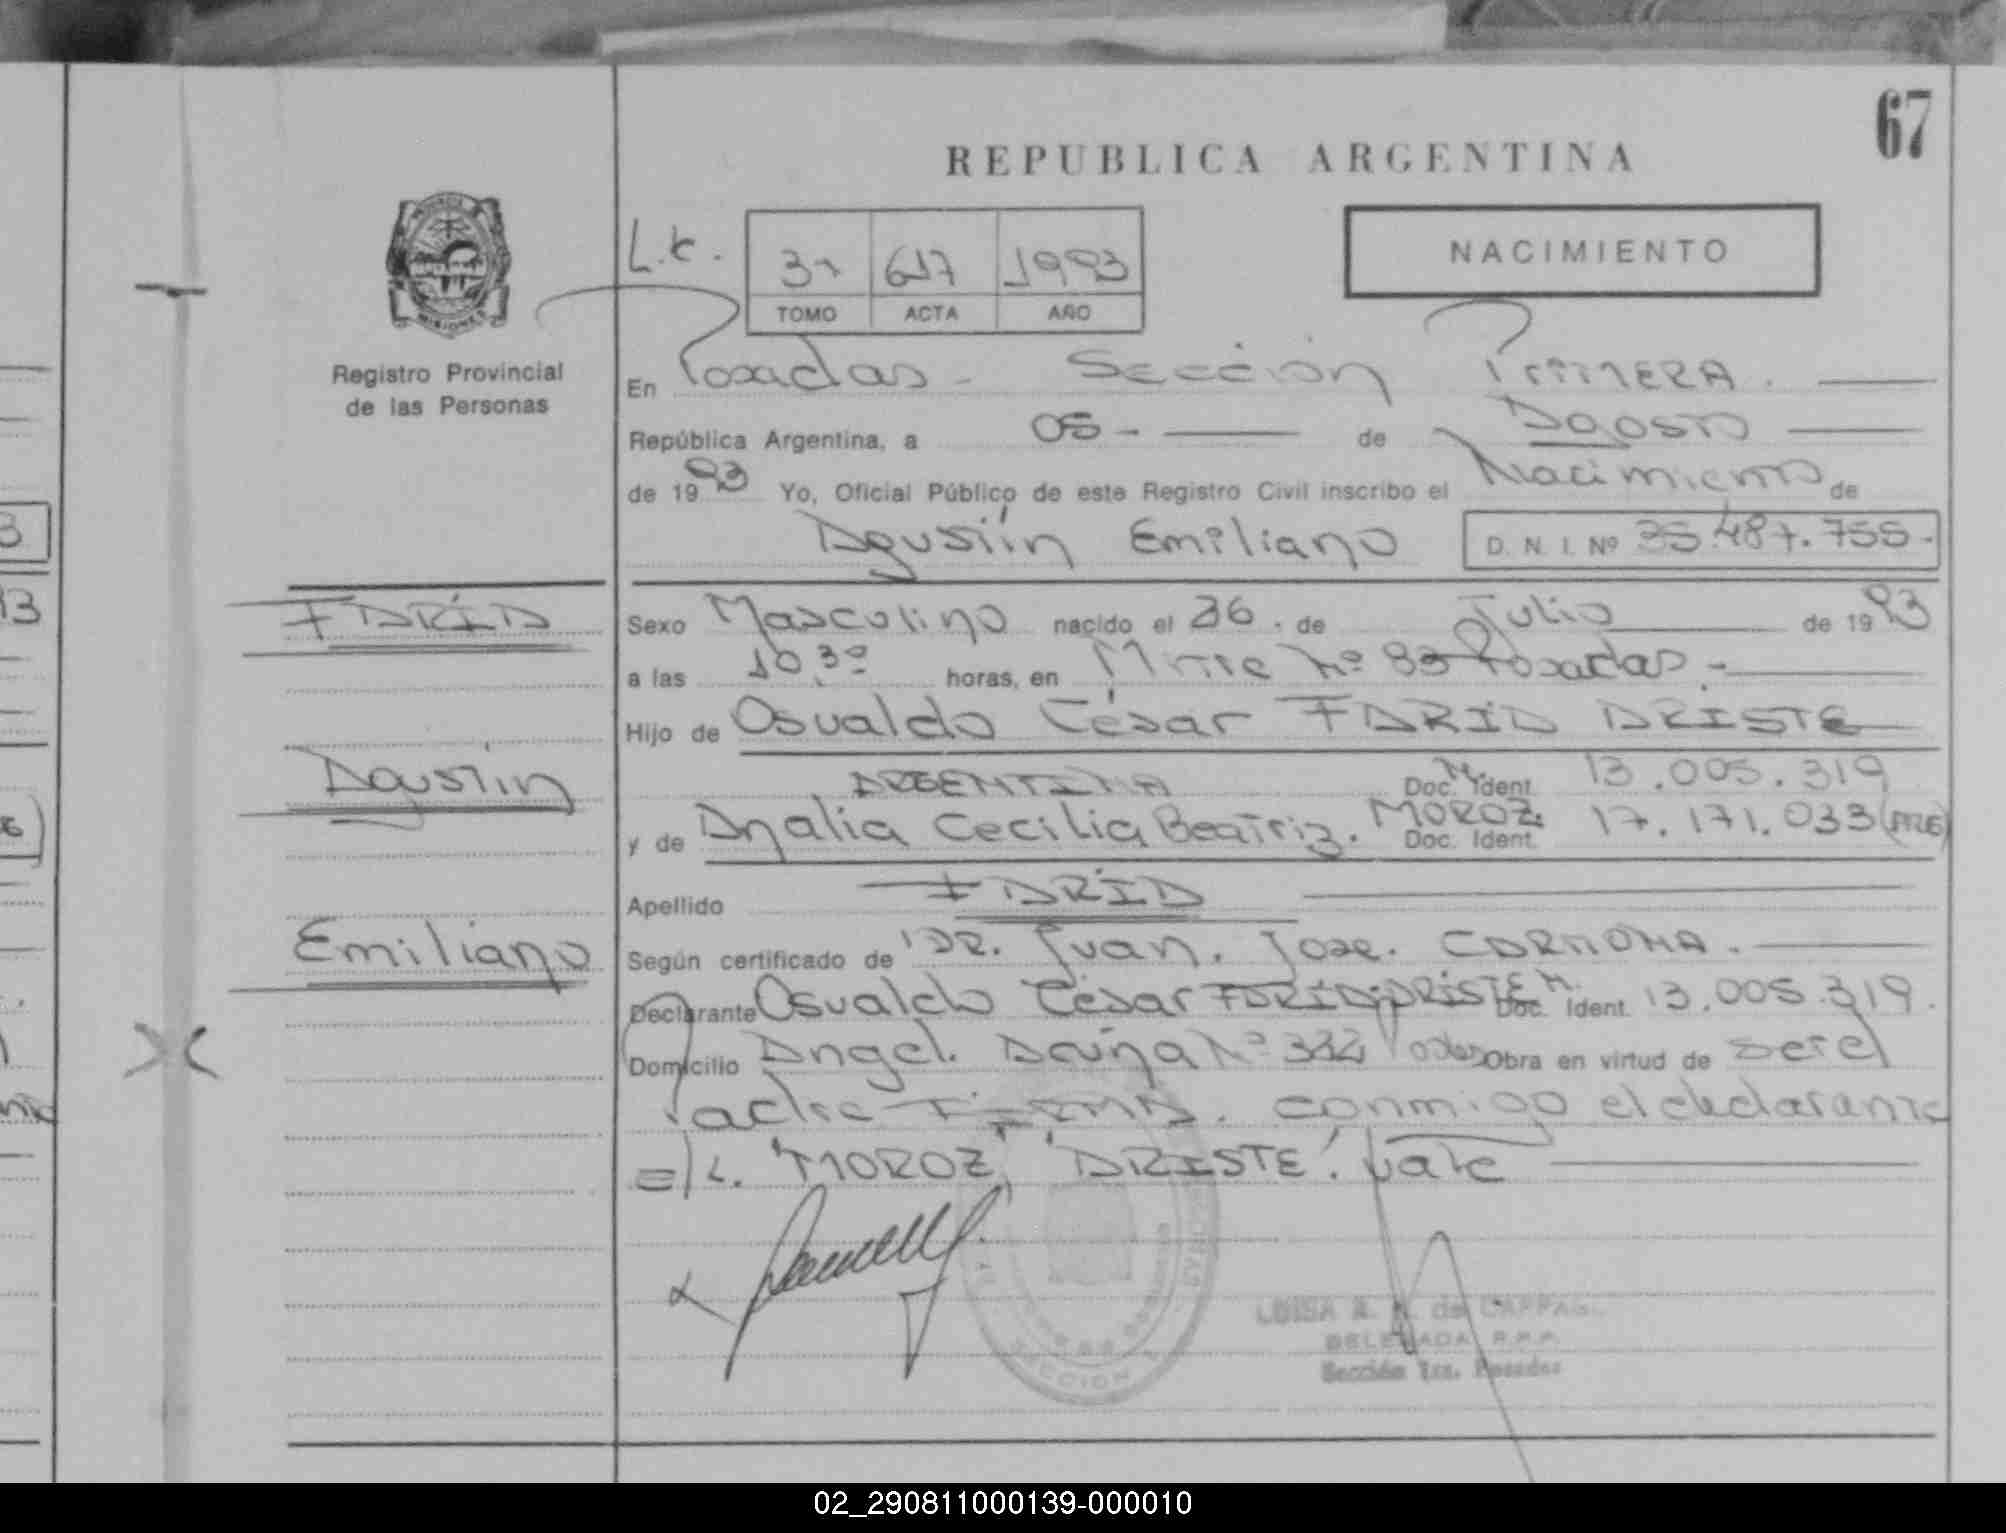 67
REPUBLICA ARGENTINA
PROVINCIA DE
MISIONES
Registro Provincial
de las Personas
NACIMIENTO
31 617 1993
TOMO ACTA AÑO
En Posadas - Sección Primera.
República Argentina, a 05 - de Agosto
de 1993 Yo, Oficial Público de este Registro Civil inscribo el Nacimiento de
Agustín Emiliano D. N. I. Nº 35.487.755-
FARÍD
Sexo Masculino nacido el 26. de Julio de 1993
a las 10,30 horas, en Mitre Nº 83 Posadas.-
Hijo de Osvaldo César FARÍD ARISTE
Agustín
ARGENTINA Doc. Ident. 13.005.319
y de Analia Cecilia Beatriz. MOROZ. Doc. Ident. 17.171.033
Apellido FARÍD
Emiliano
Según certificado de DR. Juan. Jose. CARMONA.
Declarante Osvaldo César FARÍD ARISTE Doc. Ident. 13.005.319.
Domicilio Angel. Acuña Nº Pdas Obra en virtud de ser el
Padre FIRMA. conmigo el declarante
E/L. "MOROZ", "ARISTE". Vale
SECCION
LUISA A. de
DELEGADA R.P.P.
Sección 1ra. Posadas
02_290811000139-000010